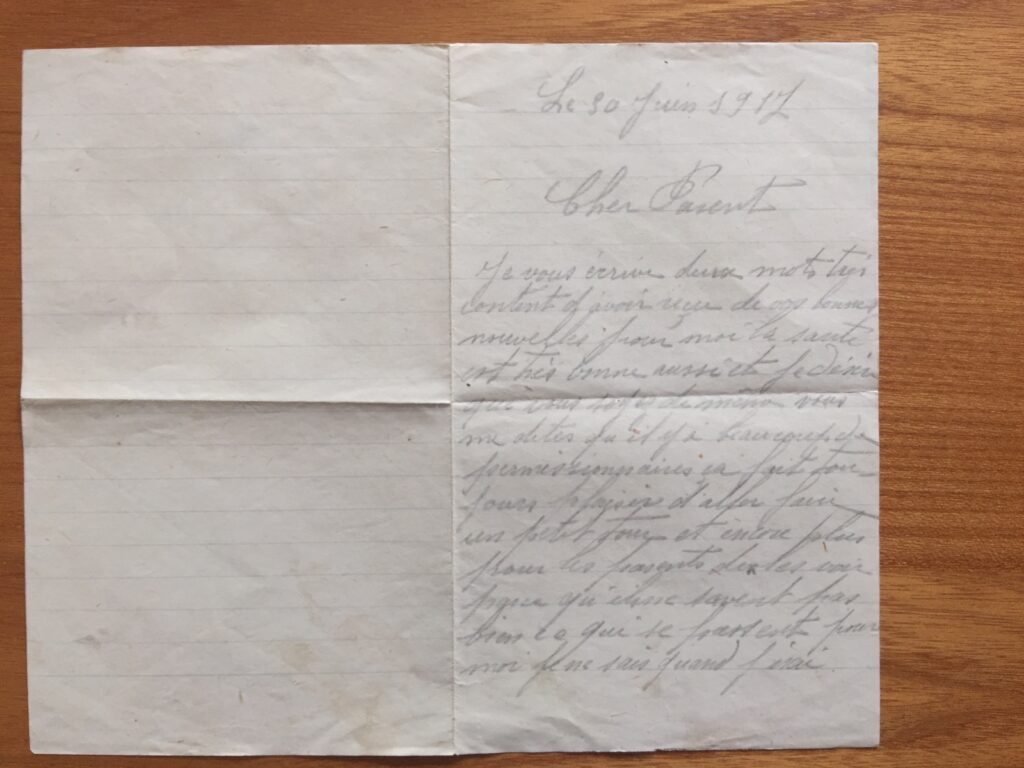 Le 30 Juin 1917
Cher Parent
Je vous écrive deux mots très
content d'avoir reçu de vos bonnes
nouvelles pour moi la santé
est très bonne aussi et je désire
que vous soyez de même vous
me dites qu'il y a beaucoup de
permissionnaires ca fait tou-
jours plaisir d'aller faire
un petit tour et encore plus
pour les parents de les voir
parce qu'eux savent pas
bien ce qui se passent pour
moi je ne sais quand j'irai